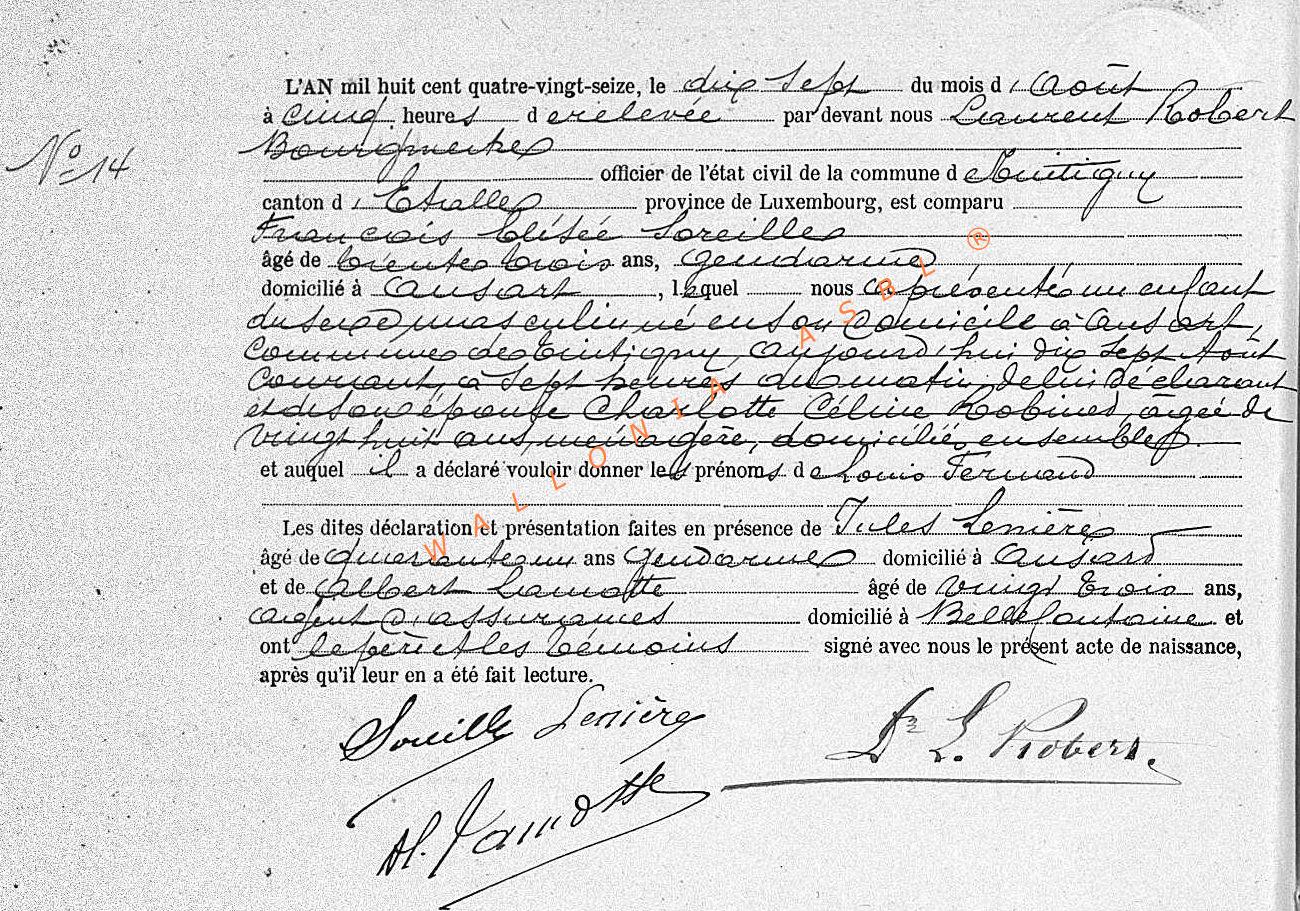 L'AN mil huit cent quatre-vingt-seize, le dix sept du mois d'Août
à cinq heures de relevée par devant nous Laurent Robert
Bourgmestre
N° 14
officier de l'état civil de la commune de Tintigny
canton d'Etalle province de Luxembourg, est comparu
François Elisée Soreille
âgé de trente trois ans, gendarme
domicilié à Ansart, lequel nous a présenté un enfant
du sexe masculin né en son domicile à Ansart,
commune de Tintigny, aujourd'hui dix sept Août
courant, à sept heures du matin, de lui déclarant
et de son épouse Charlotte Céline Robinet, âgée de
vingt huit ans, ménagère, domiciliés ensemble
et auquel il a déclaré vouloir donner les prénoms de Louis Fernand
Les dites déclaration et présentation faites en présence de Jules Lenière
âgé de quarante un ans gendarme domicilié à Ansart
et de Albert Lamotte âgé de vingt trois ans,
agent d'assurances domicilié à Bellefontaine et
ont le père et les témoins signé avec nous le présent acte de naissance,
après qu'il leur en a été fait lecture.
Soreille Lenière
Dr L. Robert.
Al. Lamotte
WALLONIA ASBL ®